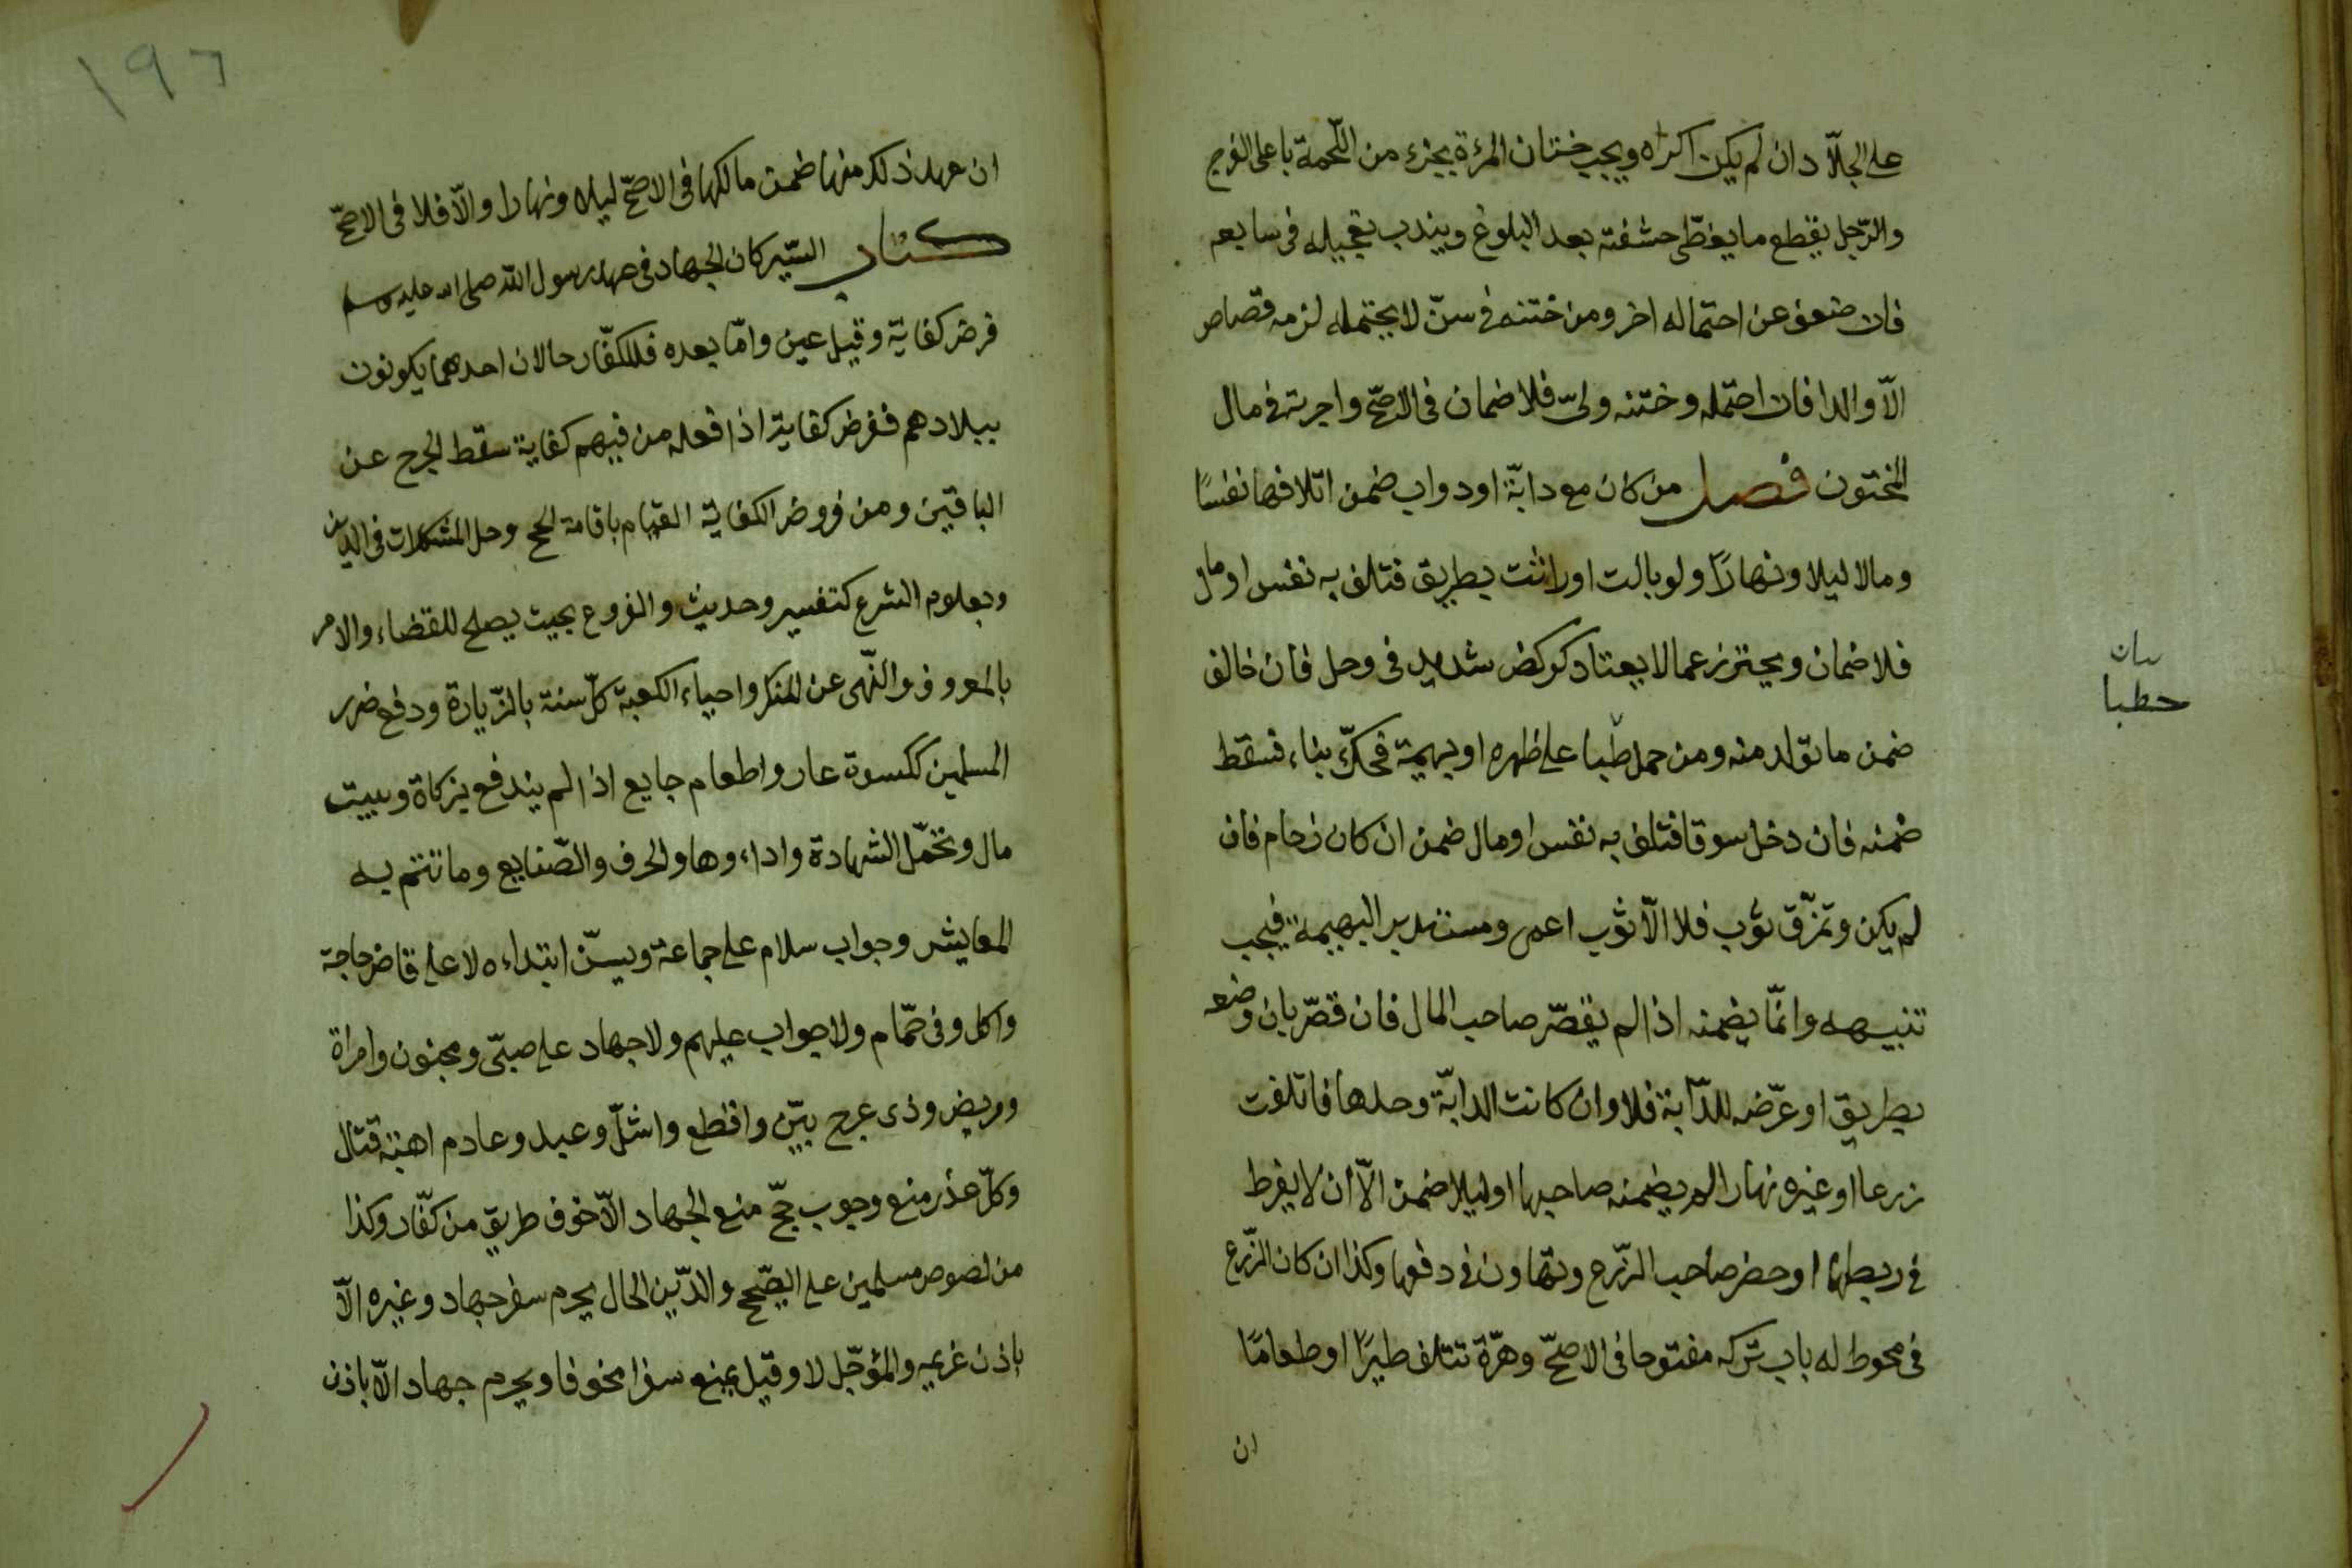 على الجلّاد ان لم يكن اكراه ويجب ختان المرءة بجزء من اللّحمة باعلى الفرج
والرّجل بقطع ما يغطّى حشفته بعد البلوغ ويندب تعجيله فى سابعه
فان ضعف عن احتماله اخر ومن ختنه فى سنّ لا يحتمله لزمه قصاص
الّا والدا فان احتمله وختنه ولىّ فلا ضمان فى الاصحّ واجرته فى مال
المختون فصل من كان مع دابّة او دواب ضمن اتلافها نفسًا
ومالا ليلا ونهارًا ولو بالت او راثت بطريق فتلف به نفس او مال
فلا ضمان ويحترز عما لا يعتاد كركض شديد فى وحل فان خالف
ضمن ما تولد منه ومن حمل طبا على ظهره او بهيمة فحكّ بناء فسقط
ضمنه فان دخل سوقا فتلف به نفس او مال ضمن ان كان زحام فان
لم يكن وتمزّق ثوب فلا الّا ثوب اعمى ومستدبر البهيمة فيجب
تنبيهه وانّما يضمنه اذا لم يقصّر صاحب المال فان قصّر بان وضعه
بطريق او عرّضه للدّابة فلا وان كانت الدابّة وحدها فاتلفت
زرعا او غيره نهارا لم يضمنه صاحبها او ليلا ضمن الّا أن لا يفرط
فى ربطها او حضر صاحب الزّرع وتهاون فى دفعها وكذا ان كان الزّرع
فى محوط له باب تركه مفتوحا فى الاصحّ وهرّة تتلف طيرًا او طعامًا
ان
بيان
حطبا
١٩٦
ان عهد ذلك منها ضمن مالكها فى الاصحّ ليلا ونهارا والّا فلا فى الاصحّ
كتاب السّير كان الجهاد فى عهد رسول الله صلى الله عليه وسلم
فرض كفاية وقيل عين وامّا بعده فللكفّار حالان احدهما يكونون
ببلادهم ففرض كفاية اذا فعله من فيهم كفاية سقط الحرج عن
الباقين ومن فروض الكفاية القيام باقامة الحجج وحل المشكلات فى الدّين
وبعلوم الشرع كتفسير وحديث والفروع بحيث يصلح للقضاء والامر
بالمعروف والنّهى عن المنكر واحياء الكعبة كلّ سنة بالزّيارة ودفع ضرر
المسلمين ككسوة عار واطعام جايع اذا لم يندفع بزكاة وبيت
مال وتحمّل الشهادة واداءوها والحرف والصّنايع وما تتم به
المعايش وجواب سلام على جماعة ويسنّ ابتداءه لا على قاض حاجة
واكل وفى حمّام ولا جواب عليهم ولا جهاد على صبىّ ومجنون وامراة
ومريض وذى عرج بيّن واقطع واشلّ وعبد وعادم اهبة قتال
وكلّ عذر منع وجوب حجّ منع الجهاد الّا خوف طريق من كفّار وكذا
من لصوص مسلمين على الصّحيح والدّين الحال يحرم سفر جهاد وغيره الّا
بإذن غريمه والمؤجّل لا وقيل يمنع سفرا مخوفا ويحرم جهاد الّا باذن